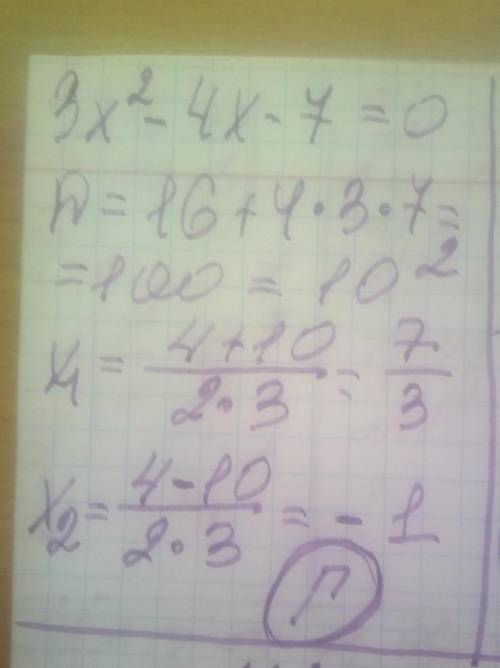 3x² - 4x - 7 = 0
D = 16 + 4 · 3 · 7 =
= 100 = 10²
x₁ = (4 + 10) / (2 · 3) = 7/3
x₂ = (4 - 10) / (2 · 3) = - 1
Г